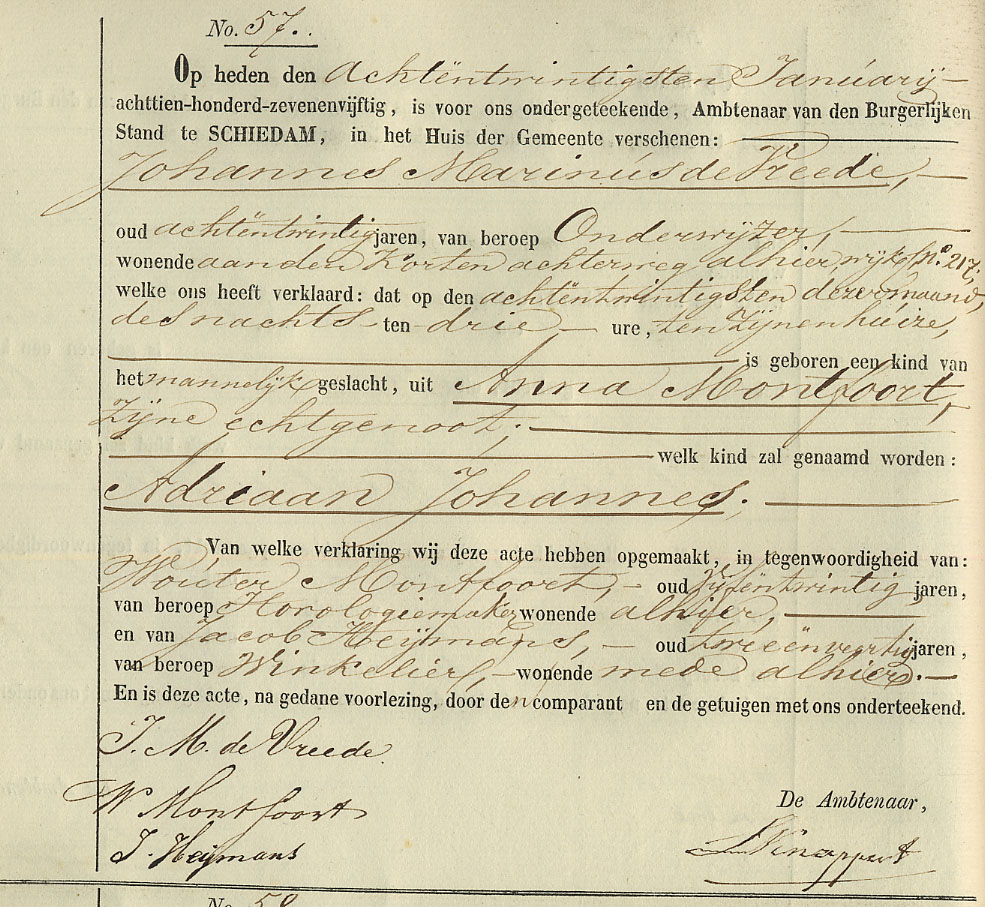 No. 57.
Op heden den achtëntwintigsten Januarij
achttien-honderd-zevenenvijftig, is voor ons ondergeteekende, Ambtenaar van den Burgerlijken
Stand te SCHIEDAM, in het Huis der Gemeente verschenen:
Johannes Marinus de Vreede,
oud achtëntwintig jaren, van beroep Onderwijzer,
wonende aan den Korten achterweg alhier, wijk No. 217,
welke ons heeft verklaard: dat op den achtëntwintigsten dezer maand,
des nachts ten drie ure, ten zijnen huize,
is geboren een kind van
het mannelijk geslacht, uit Anna Montfoort,
zijne echtgenoot;
welk kind zal genaamd worden:
Adriaan Johannes.
Van welke verklaring wij deze acte hebben opgemaakt, in tegenwoordigheid van:
Wouter Montfoort, oud vijfëntwintig jaren,
van beroep Horologiemaker wonende alhier,
en van Jacob Heijmans, oud tweeënveertig jaren,
van beroep Winkelier, wonende mede alhier.
En is deze acte, na gedane voorlezing, door den comparant en de getuigen met ons onderteekend.
J. M. de Vreede.
W Montfoort
De Ambtenaar,
J. Heijmans
Knappert
No. 58